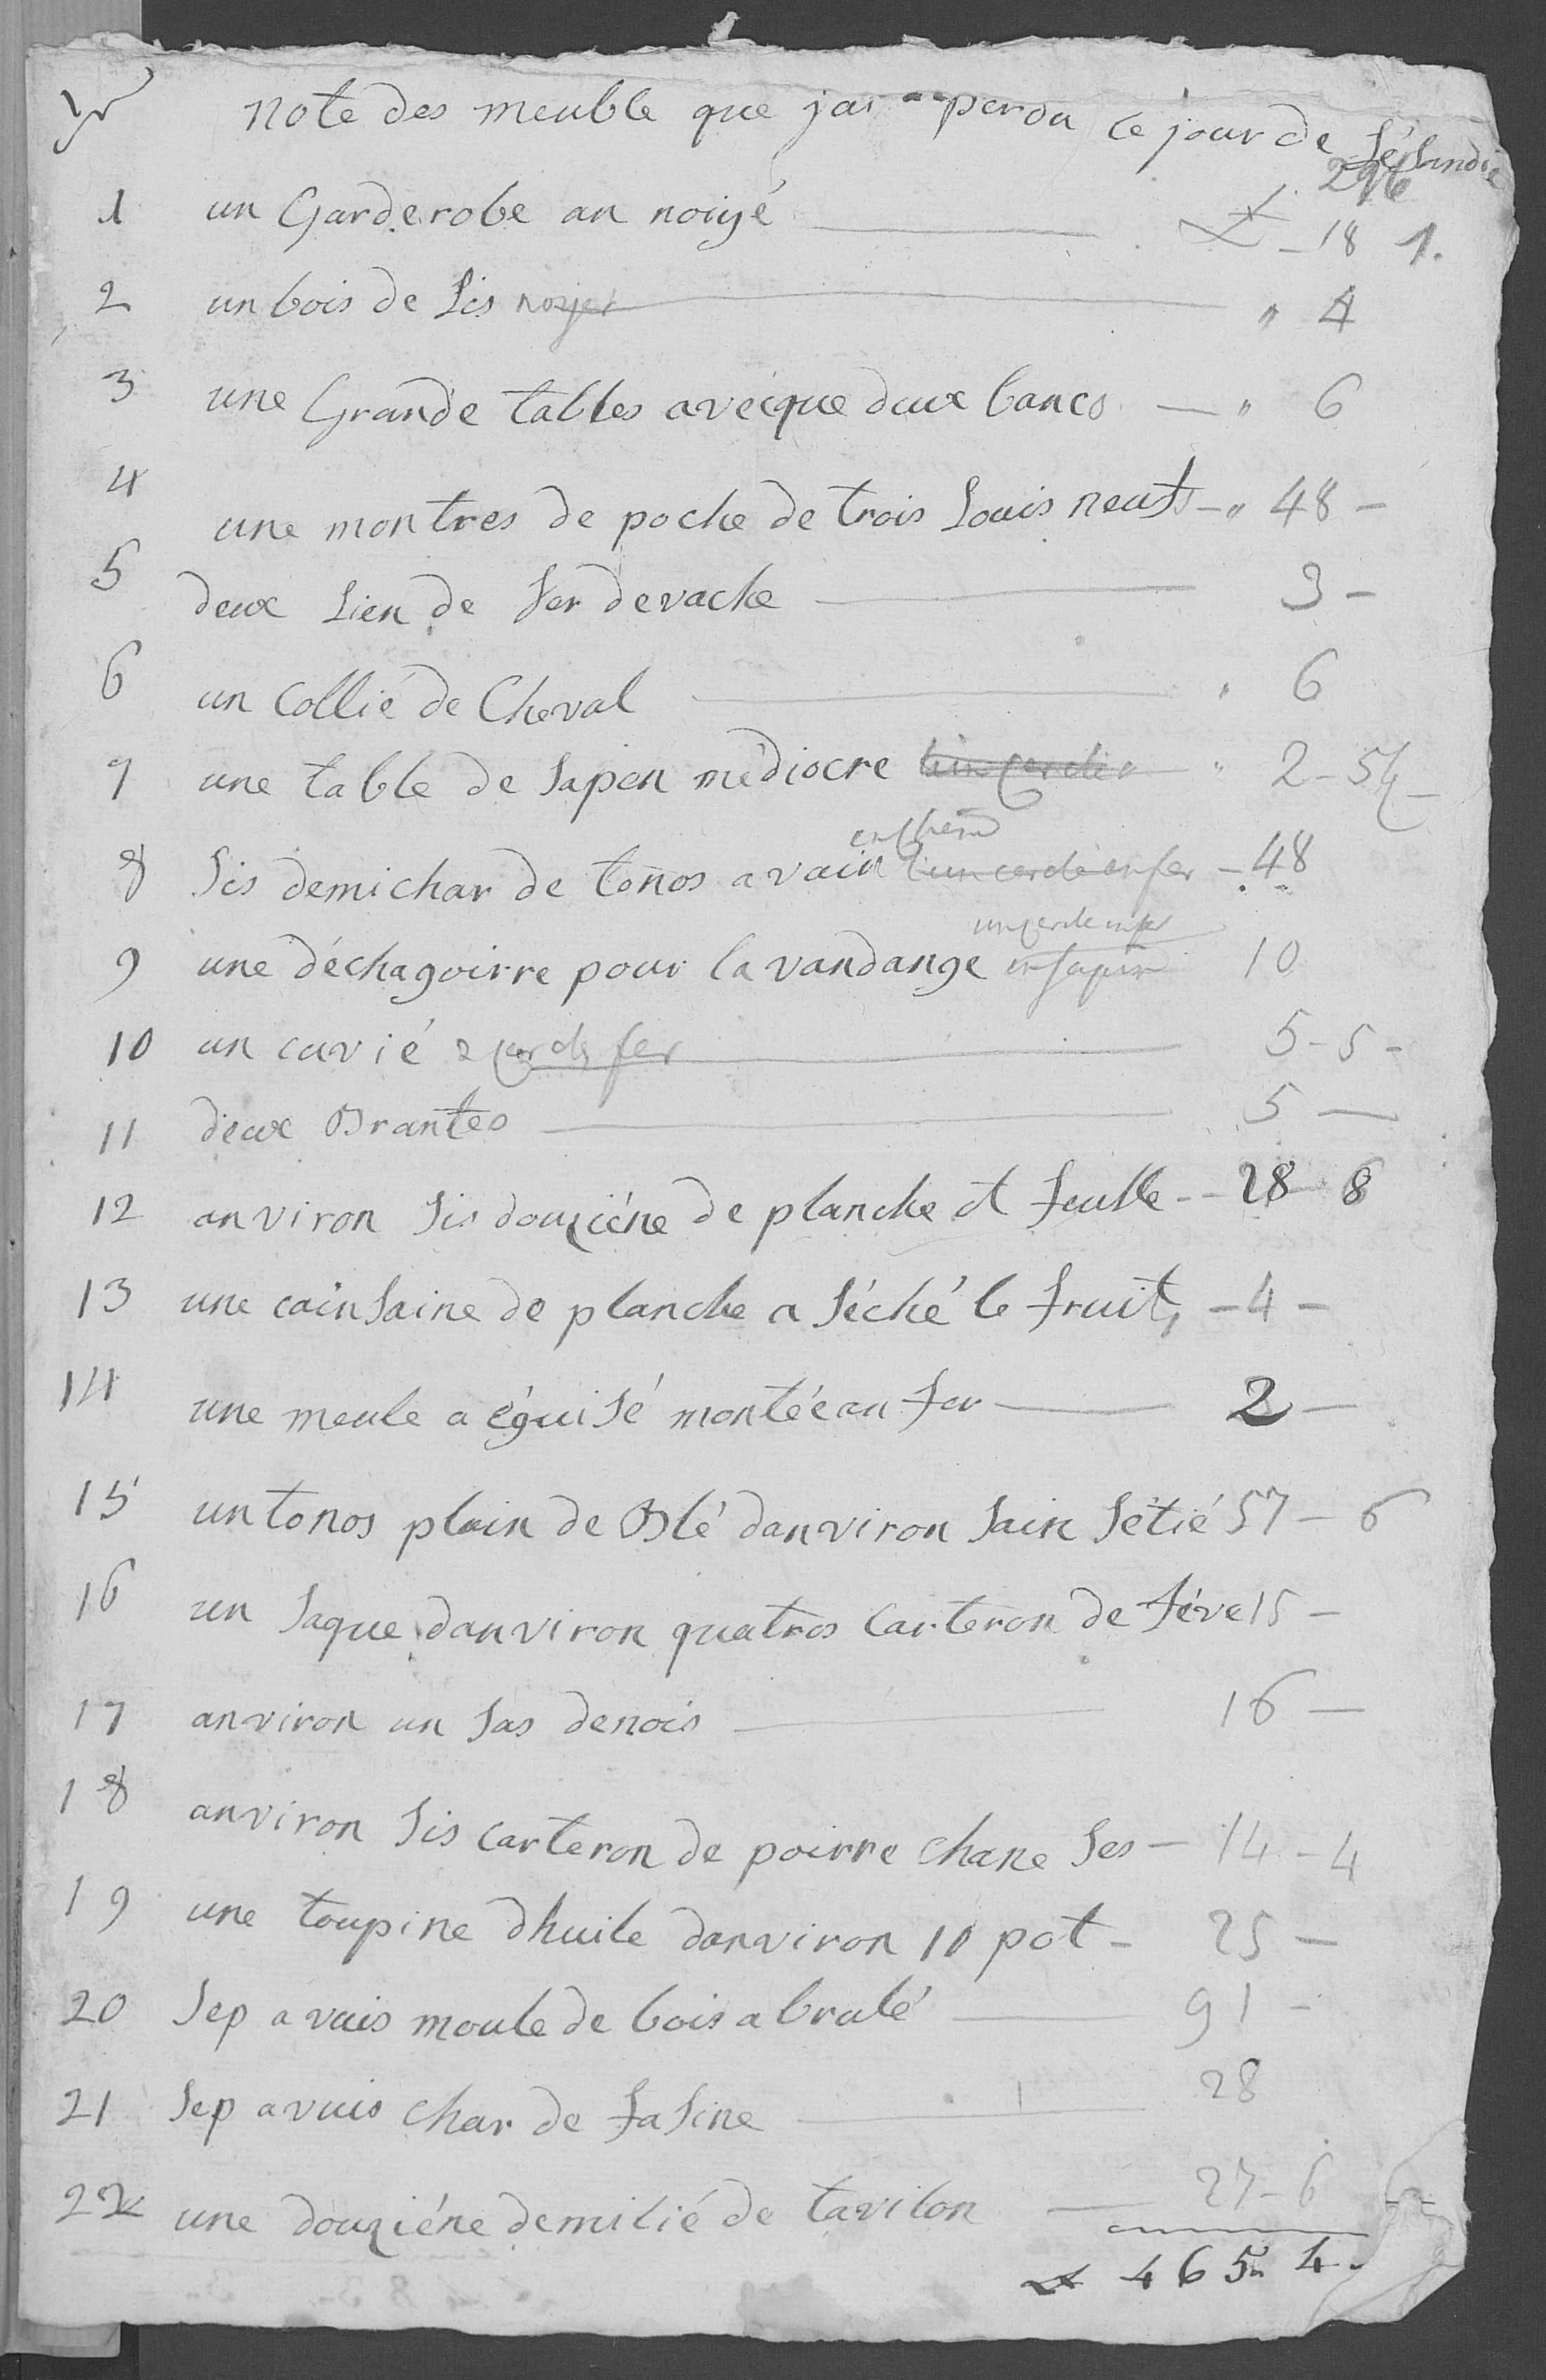 Note des meuble que jai perdu ce jour de
1 un Garderobe an noiyé 18 1.
2 un bois de Lis noyer " 4
3 une Grande tables avecque deux bancs — " 6
4 une montres de poche de trois Louis neufs - " 48 -
5 deux Lien de fer de vache 3 -
6 un Collié de Cheval " 6
7 une table de sapen médiocre " 2 -
8 Sis demichar de tonos avain un cercle en fer - 48
9 une déchagoirre pour la vandange en sapin 10
10 un cuvié 2 cercle fer 5 - 5 -
11 deux Brantes 5 —
12 anviron Sis douziéne de planche et feulle - - 28 - 8
13 une cainsaine de planche a séché le fruit, - 4 -
14 une meule a éguisé montée an fer 2 —
15 un tonos plain de Blé danviron sain sétié 57 - 6
16 un saque danviron quatros Carteron de féve 15 -
17 anviron un sas de nois 16 —
18 anviron Sis carteron de poirre chane ses - 14 - 4
19 une toupine dhuile danviron 10 pot - 25 —
20 Sep avuis moule de bois a brulé 91 -
21 Sep avuis char de fasine 28
22 une douziéne demilié de tavilon 27 - 6
465 - 4 -